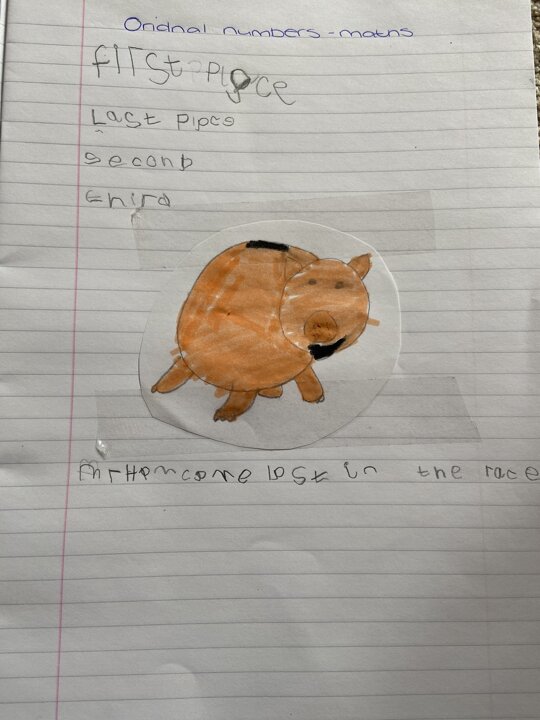 Oridnal numbers - maths
first place
Last place
second
third
mr Ham come last in the race